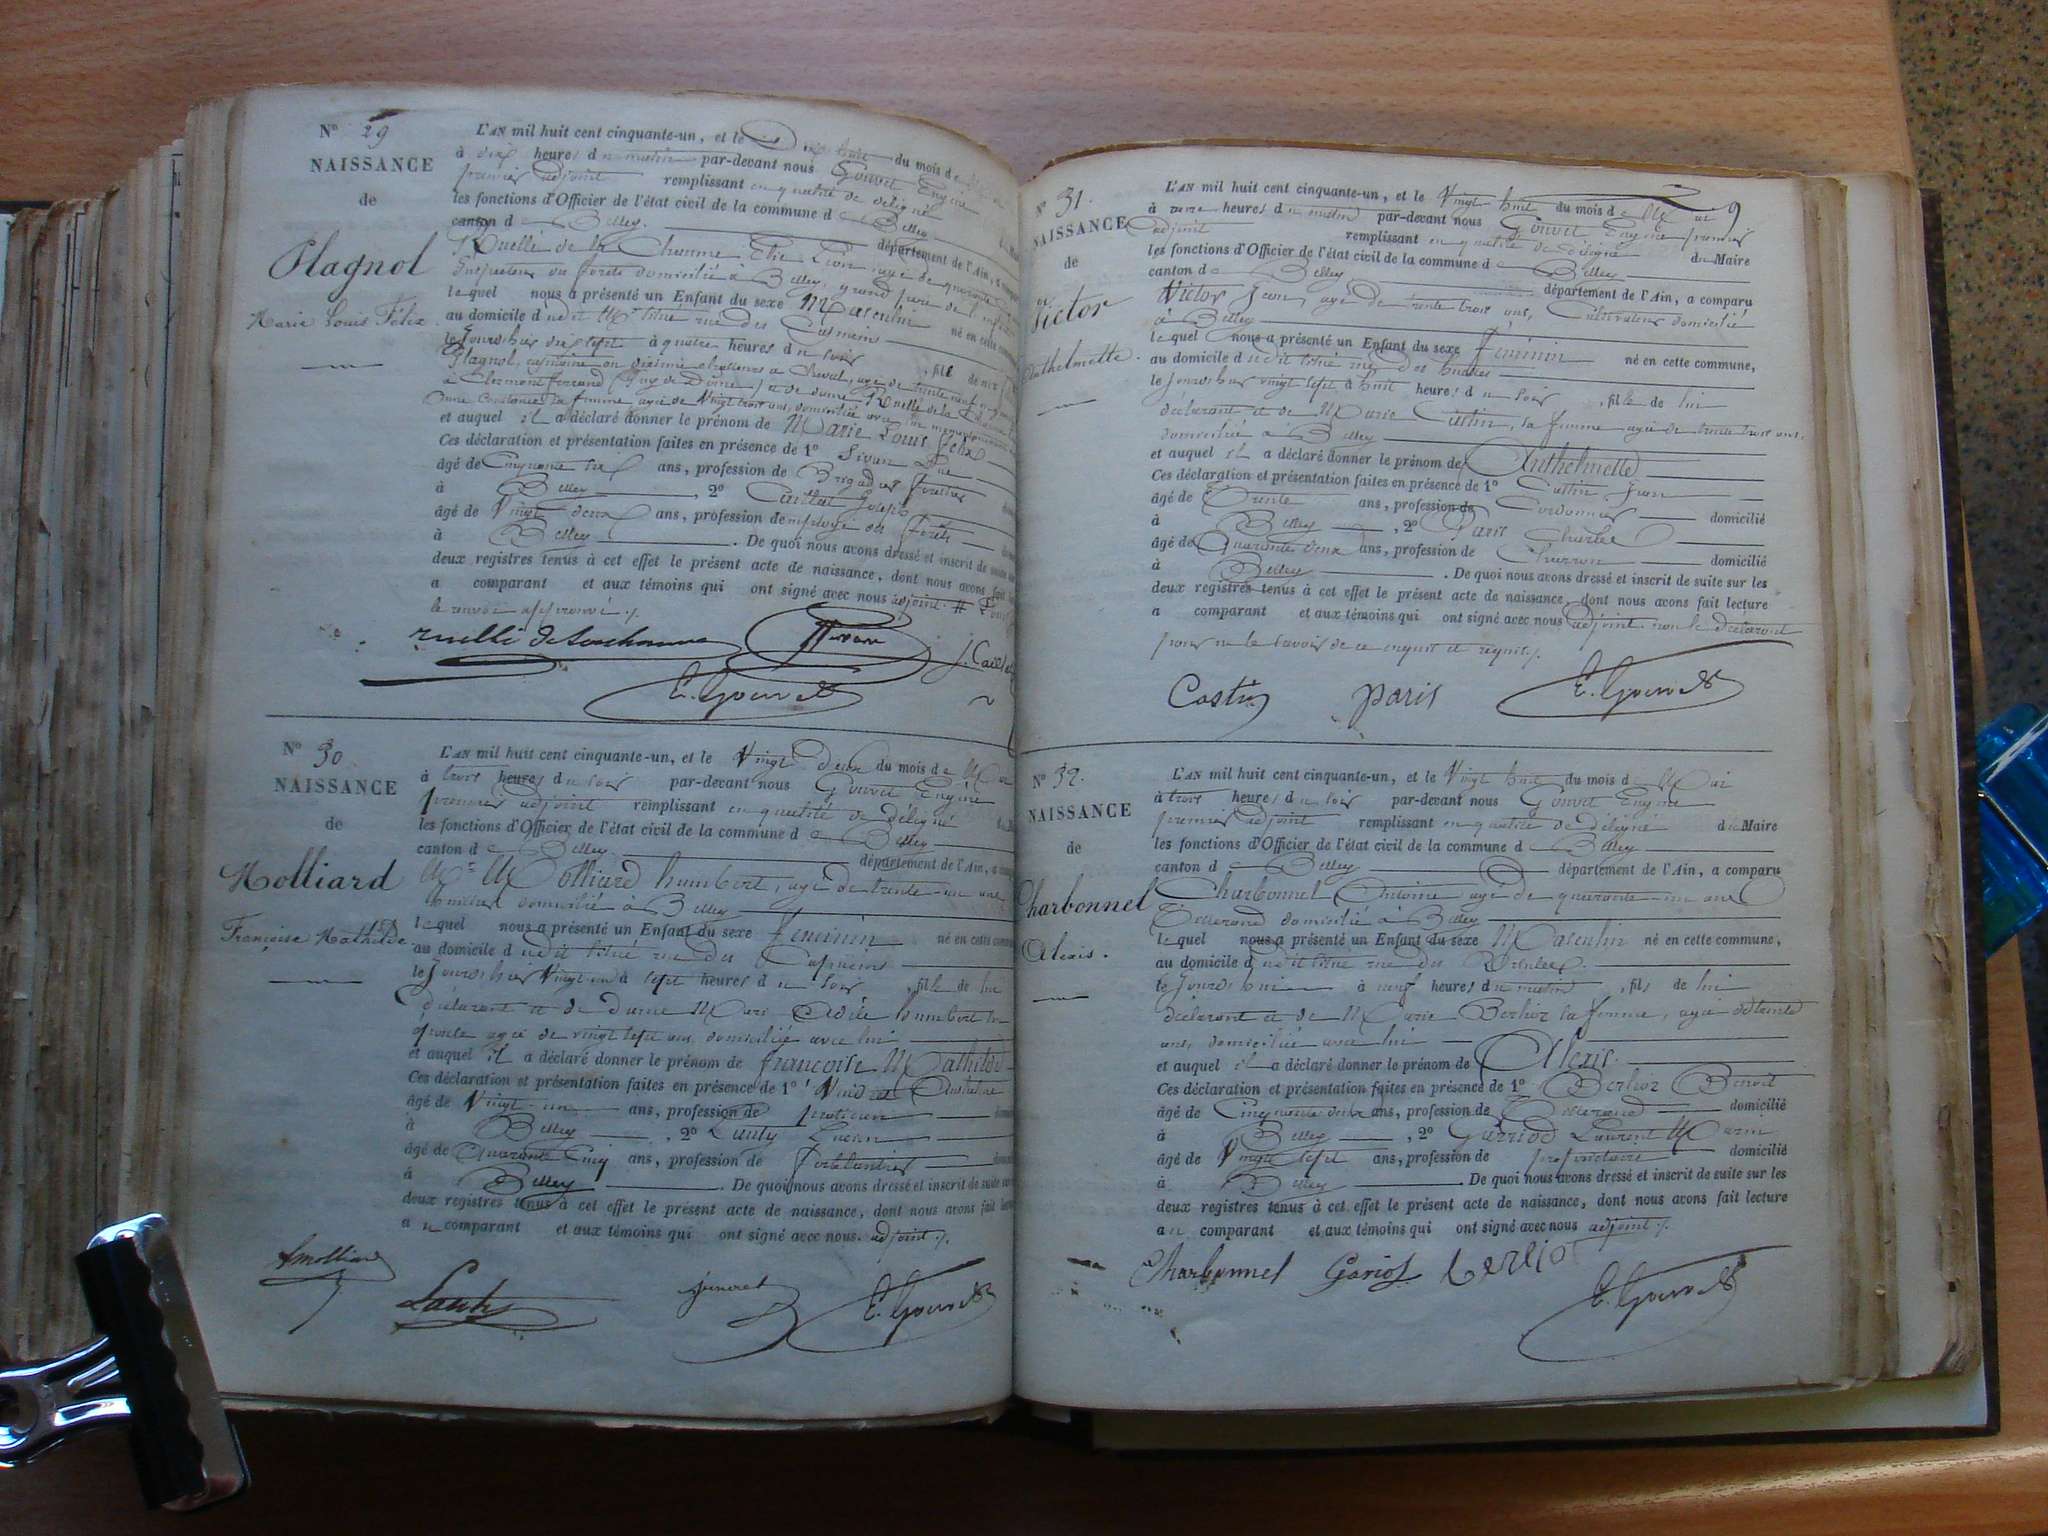 N° 29
NAISSANCE
de
Plagnol
Marie Louis Félix
L'AN mil huit cent cinquante-un, et le Dix huit du mois de
à dix heures du matin par-devant nous Gouvet Eugène
premier adjoint remplissant en qualité de délégué
les fonctions d'Officier de l'état civil de la commune de Belley
canton de Belley. département de l'Ain, a comparu
Ruelle de la Chaume Elie Léon, agé de quarante
Inspecteur des forêts domicilié à Belley, grand père de l'enfant
lequel nous a présenté un Enfant du sexe Masculin né en cette commune
au domicile dudit Mr situé rue des Capucins
le jourdhier dix sept à quatre heures du soir, fils de
Plagnol, capitaine au dixième chasseurs à cheval, agé de trente neuf
à Clermont ferrand (Puy de Dôme) et de dame Ruelle de la Chaume
Constance sa femme agée de vingt trois ans, domiciliée avec
et auquel il a déclaré donner le prénom de Marie Louis Félix
Ces déclaration et présentation faites en présence de 1° Sivan
âgé de Cinquante six ans, profession de Brigadier forestier
à Belley, 2° Caillat Joseph
âgé de Vingt deux ans, profession d'employé des forêts
à Belley. De quoi nous avons dressé et inscrit de suite
deux registres tenus à cet effet le présent acte de naissance, dont nous avons fait
a comparant et aux témoins qui ont signé avec nous adjoint. #
le renvoi approuvé ./.
ruelle de lachaume Sivan J. Caillat
E. Gouvet
N° 30
NAISSANCE
de
Molliard
Françoise Mathilde
L'AN mil huit cent cinquante-un, et le Vingt Deux du mois de Mai
à trois heures du soir par-devant nous Gouvet Eugène
premier adjoint remplissant en qualité de délégué
les fonctions d'Officier de l'état civil de la commune de Belley
canton de Belley. département de l'Ain, a
Mr Molliard humbert, agé de trente-un ans
huissier domicilié à Belley
lequel nous a présenté un Enfant du sexe féminin né en cette commune
au domicile dudit situé rue des Capucins
le jourdhier Vingt-un à sept heures du soir, fille de lui
déclarant et de dame Marie Adèle humbert son
épouse agée de vingt sept ans, domiciliée avec lui
et auquel il a déclaré donner le prénom de françoise Mathilde
Ces déclaration et présentation faites en présence de 1° Anthelme
âgé de Vingt-un ans, profession de praticien
à Belley, 2° Lauty Lucien
âgé de Quarante Cinq ans, profession de ferblantier
à Belley. De quoi nous avons dressé et inscrit de suite
deux registres tenus à cet effet le présent acte de naissance, dont nous avons fait lecture
au comparant et aux témoins qui ont signé avec nous. adjoint ./.
hmolliard
Lauty E. Gouvet
9
N° 31.
NAISSANCE
de
Victor
Anthelmette.
L'AN mil huit cent cinquante-un, et le Vingt huit du mois de Mai
à onze heures du matin par-devant nous Gouvet Eugène premier
adjoint remplissant en qualité de délégué du Maire
les fonctions d'Officier de l'état civil de la commune de Belley
canton de Belley département de l'Ain, a comparu
Victor Jean, agé de trente trois ans, Cultivateur domicilié
à Belley
lequel nous a présenté un Enfant du sexe féminin né en cette commune,
au domicile dudit situé rue des
le jourdhier vingt sept à huit heures du soir, fille de lui
déclarant et de Marie Custin, sa femme agée de trente trois ans,
domiciliée à Belley
et auquel il a déclaré donner le prénom de Anthelmette
Ces déclaration et présentation faites en présence de 1° Custin Jean
âgé de Trente ans, profession de Cordonnier domicilié
à Belley, 2° Paris Charles
âgé de Quarante deux ans, profession de Charron domicilié
à Belley. De quoi nous avons dressé et inscrit de suite sur les
deux registres tenus à cet effet le présent acte de naissance, dont nous avons fait lecture
a comparant et aux témoins qui ont signé avec nous adjoint. non le déclarant
pour ne le savoir de ce enquis et requis ./.
Costin paris E. Gouvet
N° 32.
NAISSANCE
de
Charbonnel
Alexis.
L'AN mil huit cent cinquante-un, et le Vingt huit du mois de Mai
à trois heures du soir par-devant nous Gouvet Eugène
premier adjoint remplissant en qualité de délégué du Maire
les fonctions d'Officier de l'état civil de la commune de Belley
canton de Belley département de l'Ain, a comparu
Charbonnel Antoine agé de quarante un ans
Tisserand domicilié à Belley
lequel nous a présenté un Enfant du sexe Masculin né en cette commune,
au domicile dudit situé rue des
le jourdhui à neuf heures du matin, fils de lui
déclarant et de Marie Berlioz sa femme, agée de trente
ans, domiciliée avec lui
et auquel il a déclaré donner le prénom de Alexis.
Ces déclaration et présentation faites en présence de 1° Berlioz Benoit
âgé de Cinquante deux ans, profession de Tisserand domicilié
à Belley, 2° Garriod Laurent Marin
âgé de Vingt sept ans, profession de propriétaire domicilié
à Belley. De quoi nous avons dressé et inscrit de suite sur les
deux registres tenus à cet effet le présent acte de naissance, dont nous avons fait lecture
au comparant et aux témoins qui ont signé avec nous adjoint ./.
Charbonnel Gariod berlioz
E. Gouvet